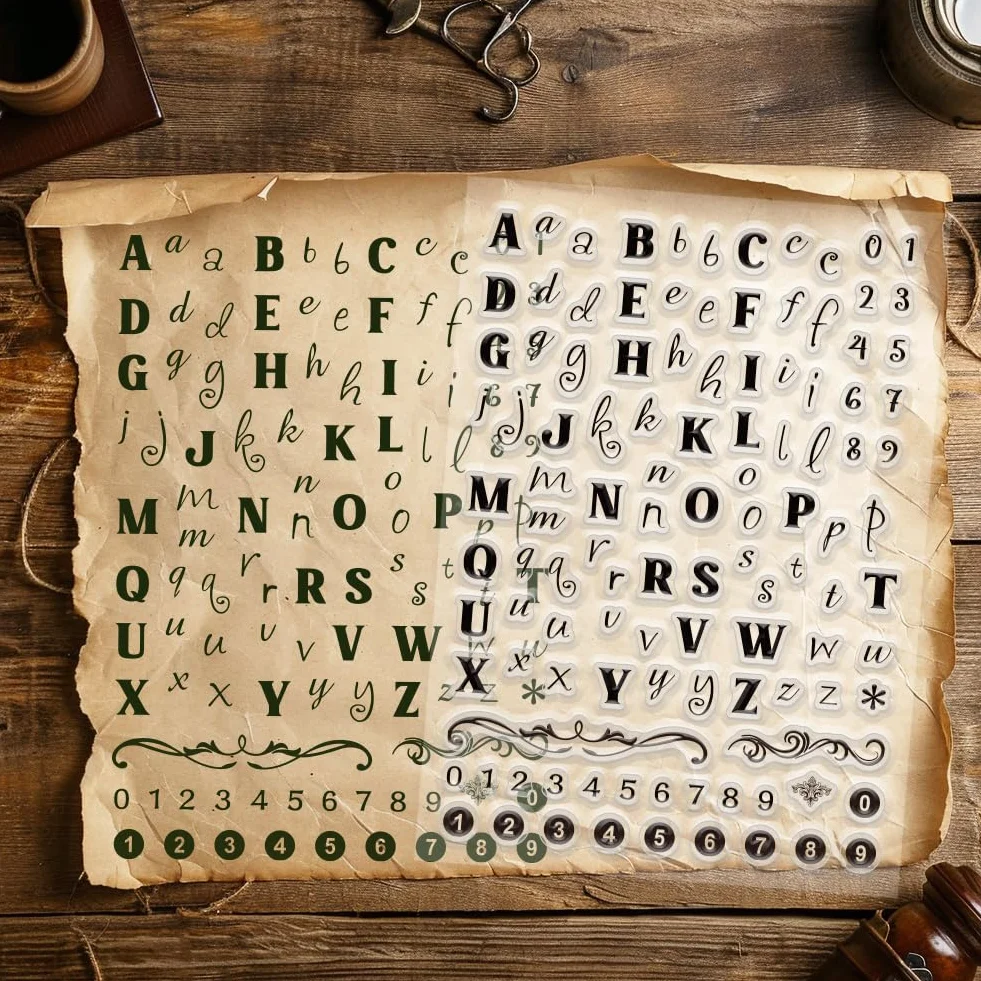 A a a B b b C c c
D d d E e e F f f
G g g H h h I i i
6 7
j j J k k K L l l 8 9
M m m N n n O o o P p p
Q q q r r R S s s t t T
U u u v v V W w w
X x x Y y y Z z z *
0 1 2 3 4 5 6 7 8 9 0
1 2 3 4 5 6 7 8 9
A a a B b b C c c 0 1
D d d E e e F f f 2 3
G g g H h h I i i 4 5
6 7
j j J k k K L l l 8 9
M m m N n n O o o P p p
Q q q r r R S s s t t T
U u u v v V W w w
X x x Y y y Z z z *
0 1 2 3 4 5 6 7 8 9 0
1 2 3 4 5 6 7 8 9